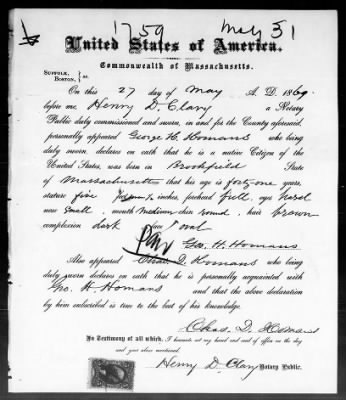 1759 May 31
United States of America.
Commonwealth of Massachusetts.
SUFFOLK, BOSTON, } ss.
On this 27 day of May A. D. 1869
before me, Henry D. Clary a Notary
Public duly commissioned and sworn, in and for the County aforesaid,
personally appeared George H. Homans who being
duly sworn, declares on oath that he is a native Citizen of the
United States, was born in Brookfield State
of Massachusetts that his age is forty-one years,
stature five inches, forehead full, eyes hazel
nose small, mouth medium chin round, hair brown
complexion dark face oval
Geo. H. Homans
Also appeared Chas D. Homans who being
duly sworn declares on oath that he is personally acquainted with
Geo. H Homans and that the above declaration
by him subscribed is true to the best of his knowledge.
Chas. D. Homans
In Testimony of all which, I hereunto set my hand and seal of office on the day
and year above mentioned.
Henry D. Clary Notary Public.